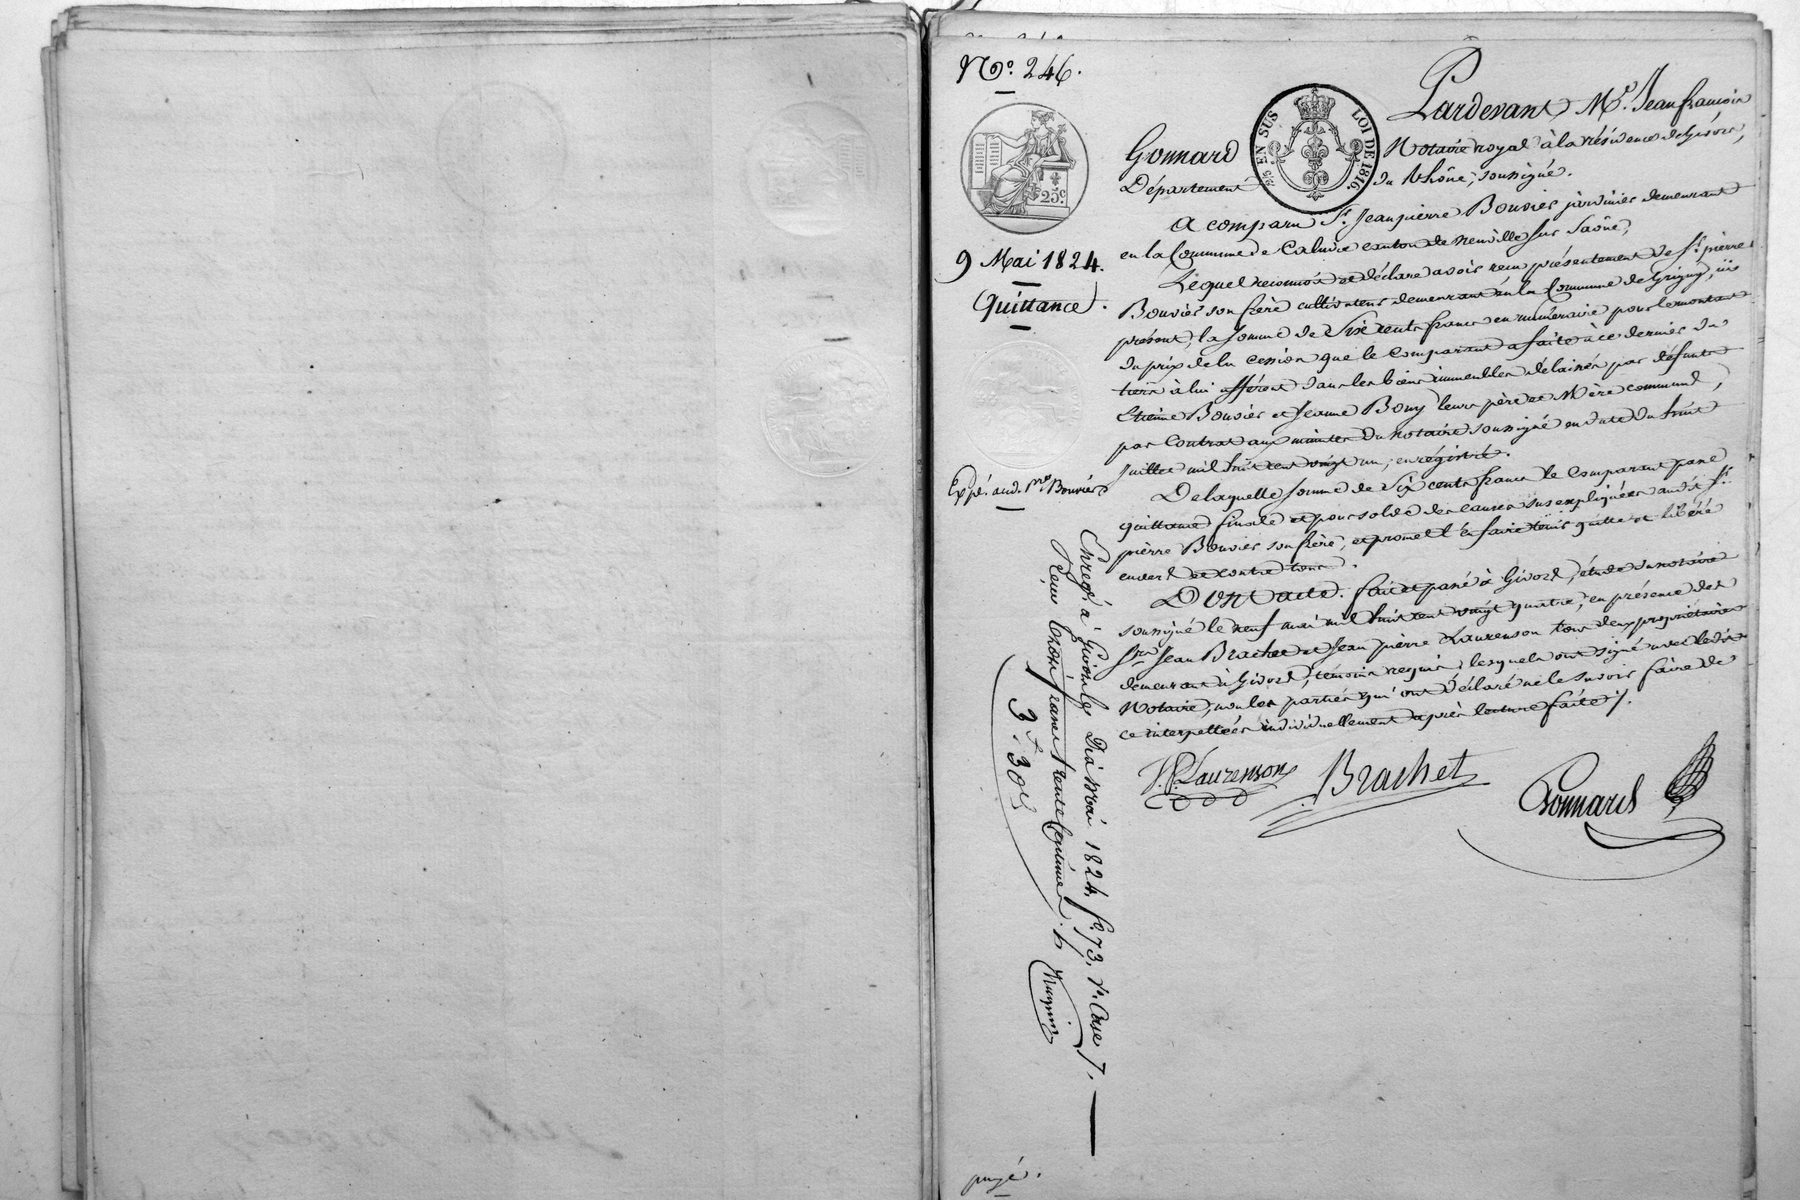 N.º 246.
25 c.
2/5 EN SUS LOI DE 1816.
9 Mai 1824.
Quittance.
Expé. aud. Bouvier
Pardevant Mᵉ. Jean françois
Gonnard Notaire royal à la résidence de Givors,
Département du Rhône, soussigné.
A comparu Sʳ. Jean pierre Bouvier jardinier demeurant
en la Commune de Caluire canton de neuville sur Saône,
Lequel reconnoit et déclare avoir reçu présentement de Sʳ. pierre
Bouvier son frère cultivateur demeurant en la Commune de Grigny, ici
présent, la somme de Six cents francs en numéraire pour le montant
du prix de la cession que le Comparant a faite à ce dernier du
tiers à lui afférent dans les biens immeubles délaissés par défunts
Etienne Bouvier et Jeanne Bony leurs père et Mère communs,
par Contrat aux minutes du notaire soussigné en date du huit
juillet mil huit cent vingt un, enrégistré.
De laquelle somme de Six cents francs le Comparant passe
quittance finale et pour solde des causes sus expliquées audit Sʳ.
pièrre Bouvier son frère, et promet l'en faire tenir quitte et libéré
envers et contre tous.
Dont acte. fait et passé à Givors, étude du notaire
soussigné le neuf mai mil huit cent vingt quatre, en présence des
Srs Jean Brachet et Jean pièrre Laurenson tous deux propriétaires
demeurant à Givors, témoins requis, lesquels ont signé avec ledit
Notaire, non les parties qui ont déclaré ne le savoir faire de
ce interpellées individuellement après lecture faite ./.
J. P. Laurenson Brachet Gonnard
Enregé. à Givors le Dix Mai 1824, fº. 73, vº. Case 7.
Reçu trois francs trente centimes
3 f 30 c